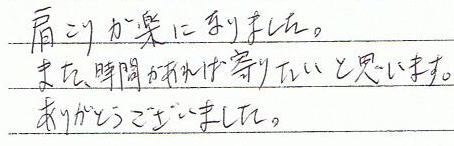 肩こりが楽になりました。
また、時間があれば寄りたいと思います。
ありがとうございました。